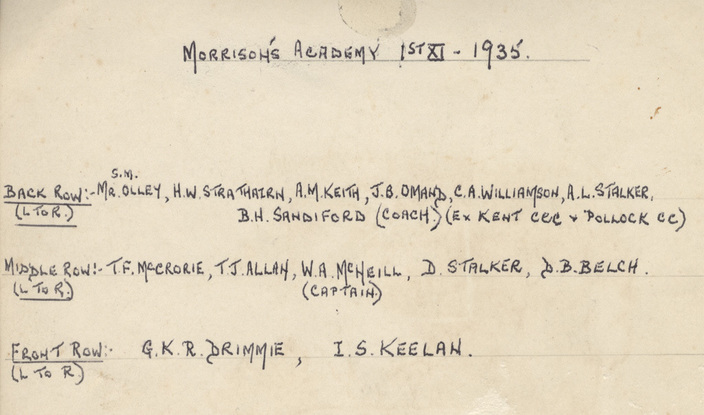 MORRISON'S ACADEMY 1ST XI - 1935.
S.M.
BACK ROW:- MR. OLLEY, H.W. STRATHAIRN, A.M. KEITH, J.B. OMAND, C.A. WILLIAMSON, A.L. STALKER,
(L TO R.) B.H. SANDIFORD (COACH.) (EX KENT CCC & POLLOCK CC)
MIDDLE ROW:- T.F. MCCRORIE, T.J. ALLAN, W.A. MCNEILL, D. STALKER, D.B. BELCH.
(L TO R.) (CAPTAIN)
FRONT ROW:- G.K.R. DRIMMIE, I.S. KEELAN.
(L TO R)